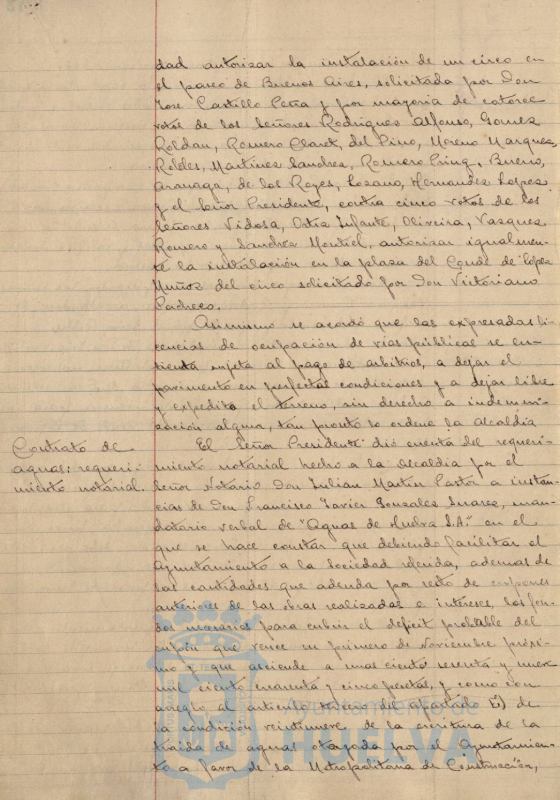 dad autorizar la instalación de un circo en
el paseo de Buenos Aires, solicitada por Don
José Castillo Peña y por mayoria de catorce
votos de los Señores Rodriguez Alfonso, Gomez
Roldan, Romero Claret, del Pino, Moreno Marquez,
Robles, Martinez Sandrea, Romero Pring, Bueno,
Aranaga, de los Reyes, Lozano, Hernandez Lopez
y el Señor Presidente, contra cinco votos de los
Señores Vidosa, Ortiz Infante, Oliveira, Vazquez
Romero y Montiel, autorizar igualmen-
te la instalación en la plaza del Conde de Lopez
Muñoz del circo solicitado por Don Victoriano
Pacheco.
Asimismo se acordó que las expresadas li-
cencias de ocupación de vias públicas se en-
tienda sujeta al pago de arbitrios, a dejar el
pavimento en perfectas condiciones y a dejar libre
y expedito el terreno, sin derecho a indemni-
zación alguna, tan pronto lo ordene la Alcaldia
Contrato de
aguas: requeri-
miento notarial.
El Señor Presidente dió cuenta del requeri-
miento notarial hecho a la Alcaldia por el
Señor Notario Don Julian Martin Pastor a instan-
cias de Don Francisco Javier Gonzales Suarez, man-
datario verbal de "Aguas de Huelva S.A." en el
que se hace constar que debiendo facilitar el
Ayuntamiento a la Sociedad referida, ademas de
las cantidades que adeuda por resto de cupones
anteriores de las obras realizadas e intereses, los fon-
dos necesarios para cubrir el deficit probable del
cupón que vence en primero de Noviembre próxi-
mo y que asciende a unas ciento sesenta y nueve
mil ciento cuarenta y cinco pesetas, y como con
arreglo al articulo tercero del apartado de
la condición veintinueve de la escritura de la
traida de aguas otorgada por el Ayuntamien-
to a favor de la Metropolitana de Construcción,
Ayuntamiento de
HUELVA